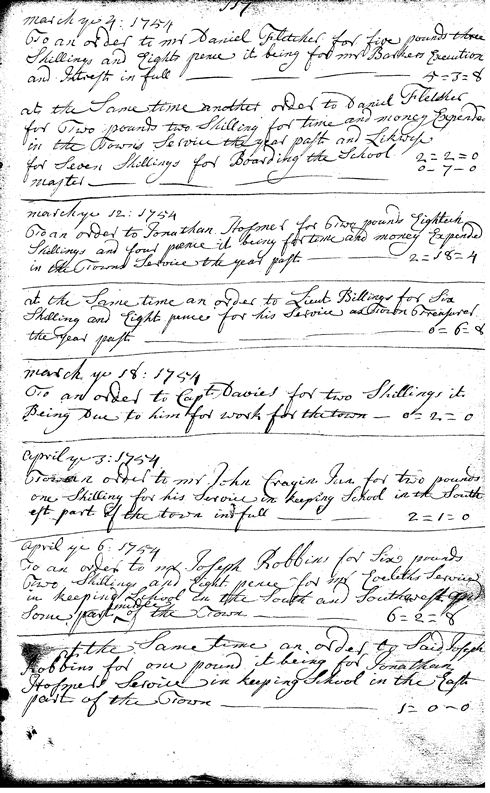 117
march ye 4: 1754
To an order to mr Daniel Fletcher for five pounds three
Shillings and Eight pence it being for mr Barkers Execution
and Intrest in full — 5=3=8
at the Same time another order to Daniel Fletcher
for Two pounds two Shilling for time and money Expended
in the Towns Service the year past and Likwise
for Seven Shillings for Boarding the School 2=2=0
master — 0-7-0
march ye 12: 1754
To an order to Jonathan Hosmer for Two pounds Eighteen
Shillings and four pence it being for time and money Expended
in the Towns Service the year past 2=18=4
at the Same time an order to Lieut Billings for Six
Shilling and Eight pence for his Service as Town Treasurer
the year past — 0=6=8
march ye 18: 1754
To an order to Capt Davies for two Shillings it
Being Due to him for work for the town — 0=2=0
april ye 3: 1754
To an order to mr John Cragin Jun for two pounds
one Shilling for his Service in keeping School in the South
est part of the town in full — 2=1=0
april ye 6: 1754
To an order to mr Joseph Robbins for Six pounds
Two Shillings and Eight pence for mr Eveleths Service
in keeping School in the South and Southwest and
Some part of the Town — 6=2=8
at the Same time an order to Said Joseph
Robbins for one pound it being for Jonathan
Hosmers Service in keeping School in the East
part of the Town — 1=0-0